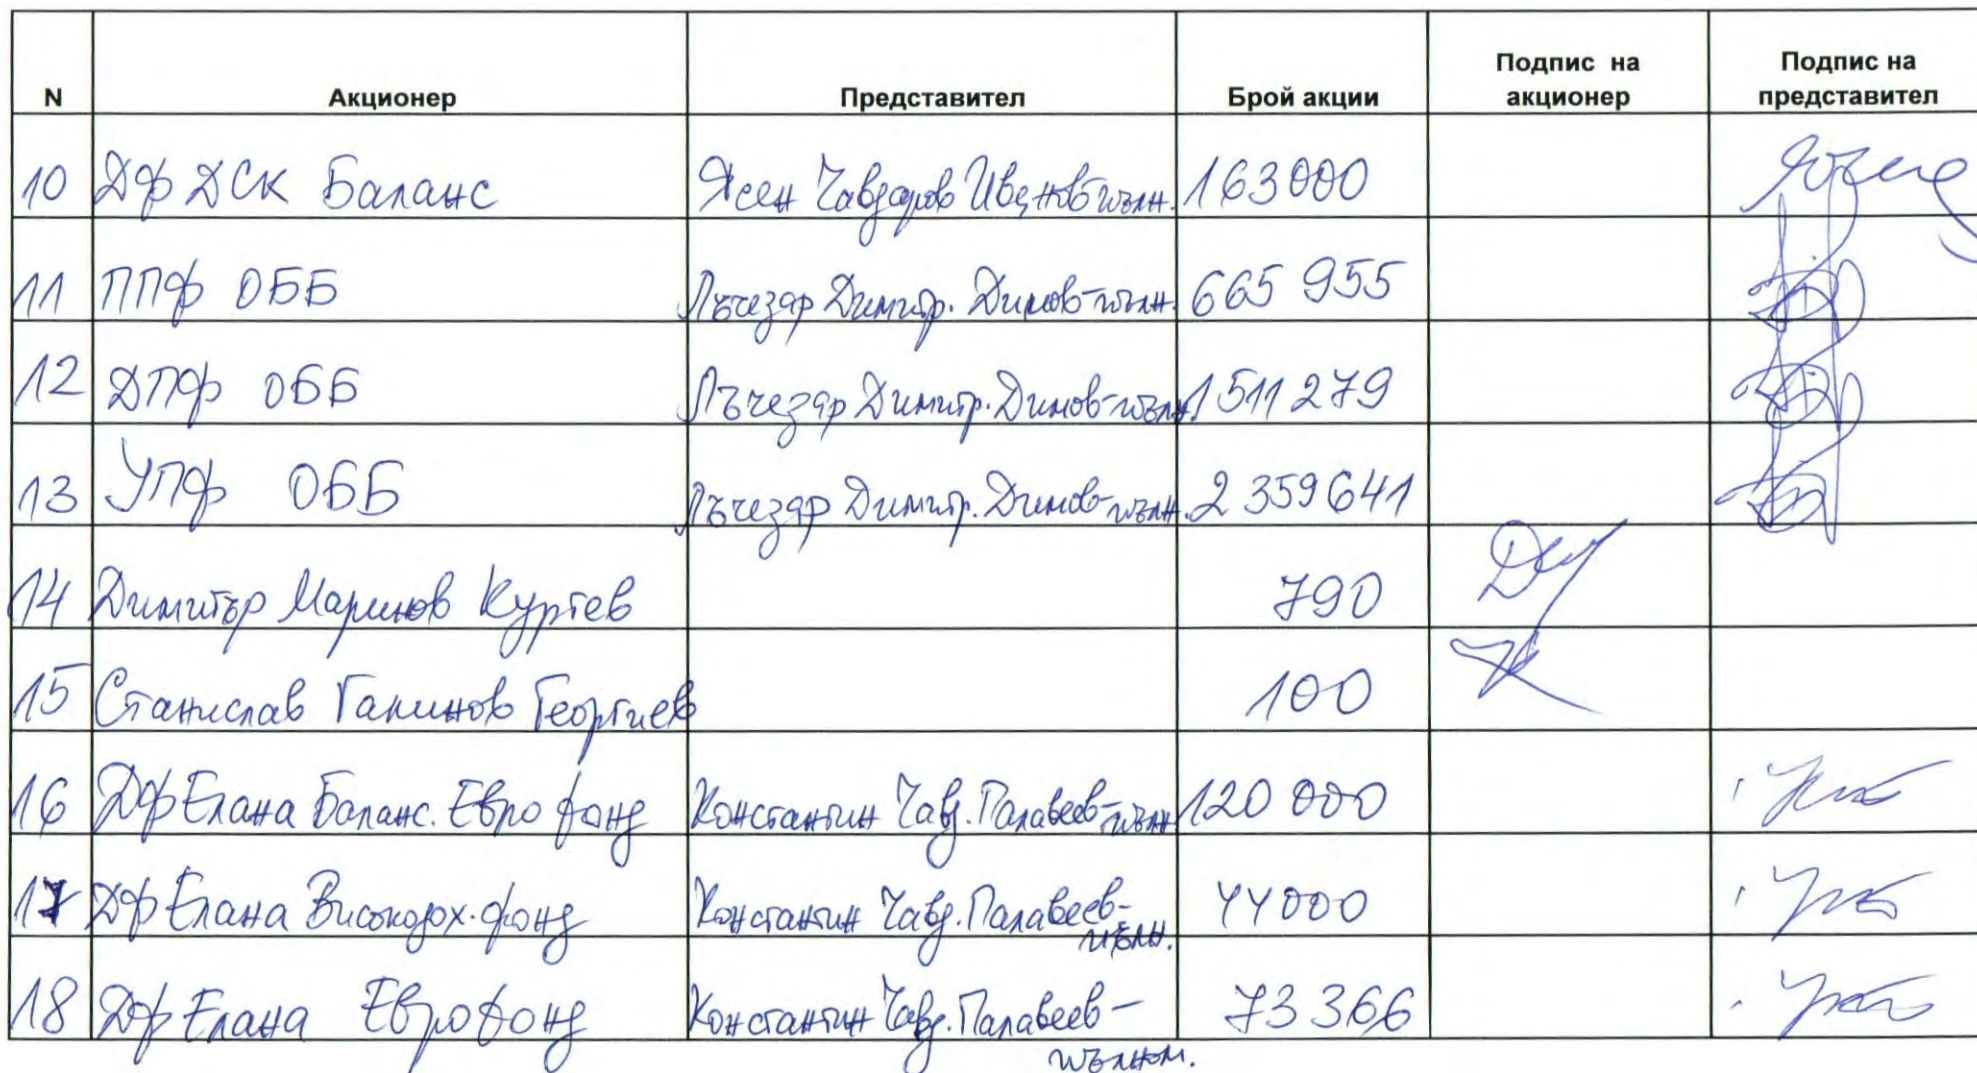 N Акционер Представител Брой акции Подпис на акционер Подпис на представител
10 ДФ ДСК Баланс Ясен Чавдаров Иванов-пълн. 163000
11 ППФ ОББ Лъчезар Димитр. Динов-пълн. 665 955
12 ДПФ ОББ Лъчезар Димитр. Динов-пълн. 1 511 279
13 УПФ ОББ Лъчезар Димитр. Динов-пълн. 2 359 641
14 Димитър Маринов Куртев 790
15 Станислав Георгиев 100
16 ДФ Елана Баланс. Евро фонд Константин Чавд. Палавеев-пълн 120 000
17 ДФ Елана Високодох. фонд Константин Чавд. Палавеев- 44000
пълн.
18 ДФ Елана Еврофонд Константин Чавд. Палавеев- 73 366
пълном.